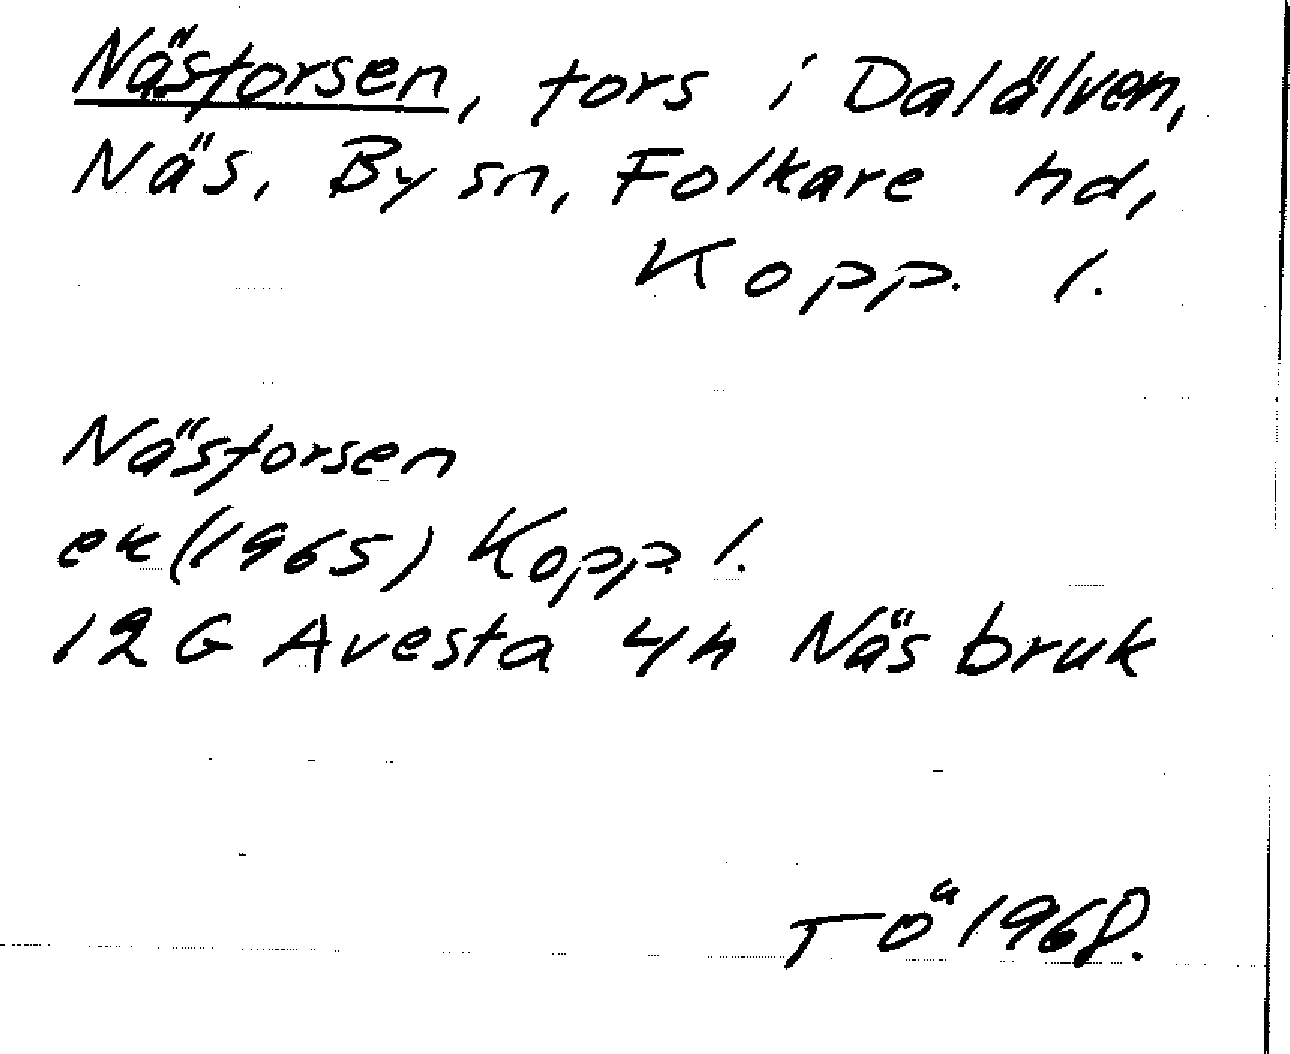 Näsforsen, fors i Dalälven,
Näs, By sn, Folkare hd,
Kopp. l.
Näsforsen
ek (1965) Kopp. l.
12 G Avesta 4h Näs bruk
TÖ 1968.